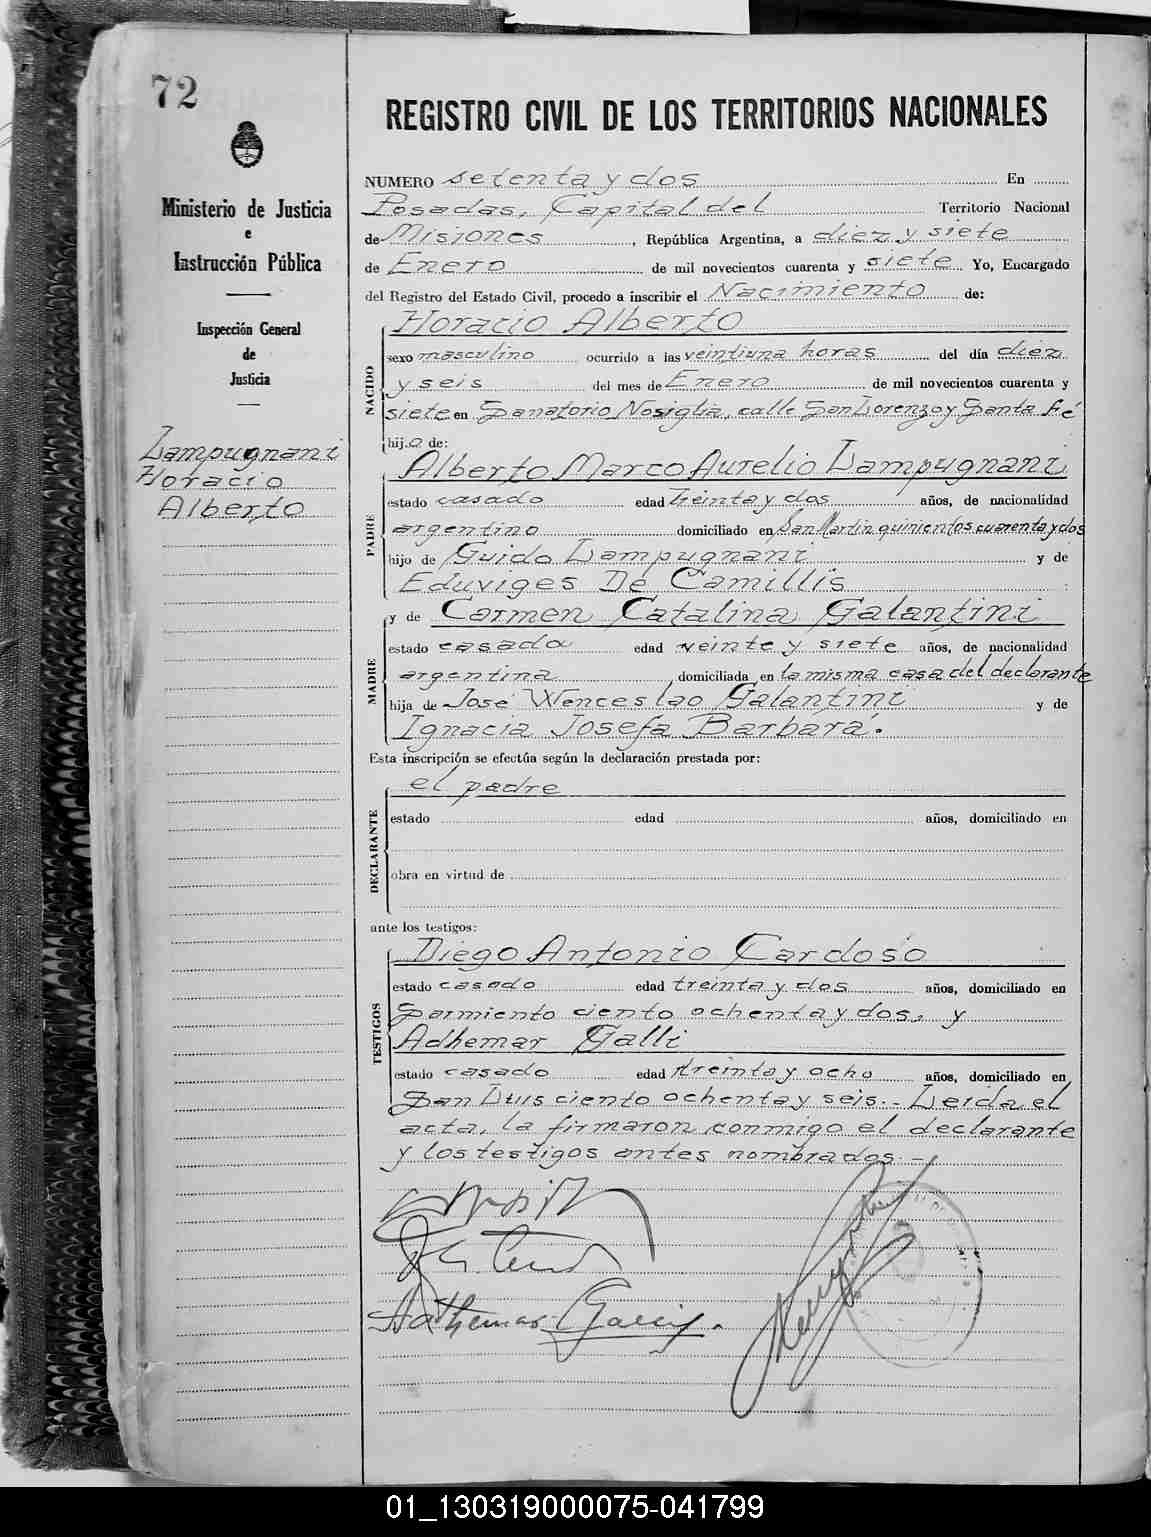 72
REGISTRO CIVIL DE LOS TERRITORIOS NACIONALES
Ministerio de Justicia
e
Instrucción Pública
Inspección General
de
Justicia
Lampugnani
Horacio
Alberto
NUMERO setenta y dos En
Posadas, Capital del Territorio Nacional
de Misiones, República Argentina, a diez y siete
de Enero de mil novecientos cuarenta y siete Yo, Encargado
del Registro del Estado Civil, procedo a inscribir el Nacimiento de:
NACIDO
Horacio Alberto
sexo masculino ocurrido a las veintiuna horas del día diez
y seis del mes de Enero de mil novecientos cuarenta y
siete en Sanatorio Nosiglia, calle San Lorenzo y Santa Fé
hijo de:
PADRE
Alberto Marco Aurelio Lampugnani
estado casado edad treinta y dos años, de nacionalidad
argentino domiciliado en San Martin quinientos cuarenta y dos
hijo de Guido Lampugnani y de
Eduviges De Camillis
MADRE
y de Carmen Catalina Galantini
estado casada edad veinte y siete años, de nacionalidad
argentina domiciliada en la misma casa del declarante
hija de José Wenceslao Galantini y de
Ignacia Josefa Barbará.
Esta inscripción se efectúa según la declaración prestada por:
DECLARANTE
el padre
estado edad años, domiciliado en
obra en virtud de
ante los testigos:
TESTIGOS
Diego Antonio Cardoso
estado casado edad treinta y dos años, domiciliado en
Sarmiento ciento ochenta y dos, y
Adhemar Galli
estado casado edad treinta y ocho años, domiciliado en
San Luis ciento ochenta y seis.- Leida el
acta, la firmaron conmigo el declarante
y los testigos antes nombrados.-
Adhemar
01_130319000075-041799